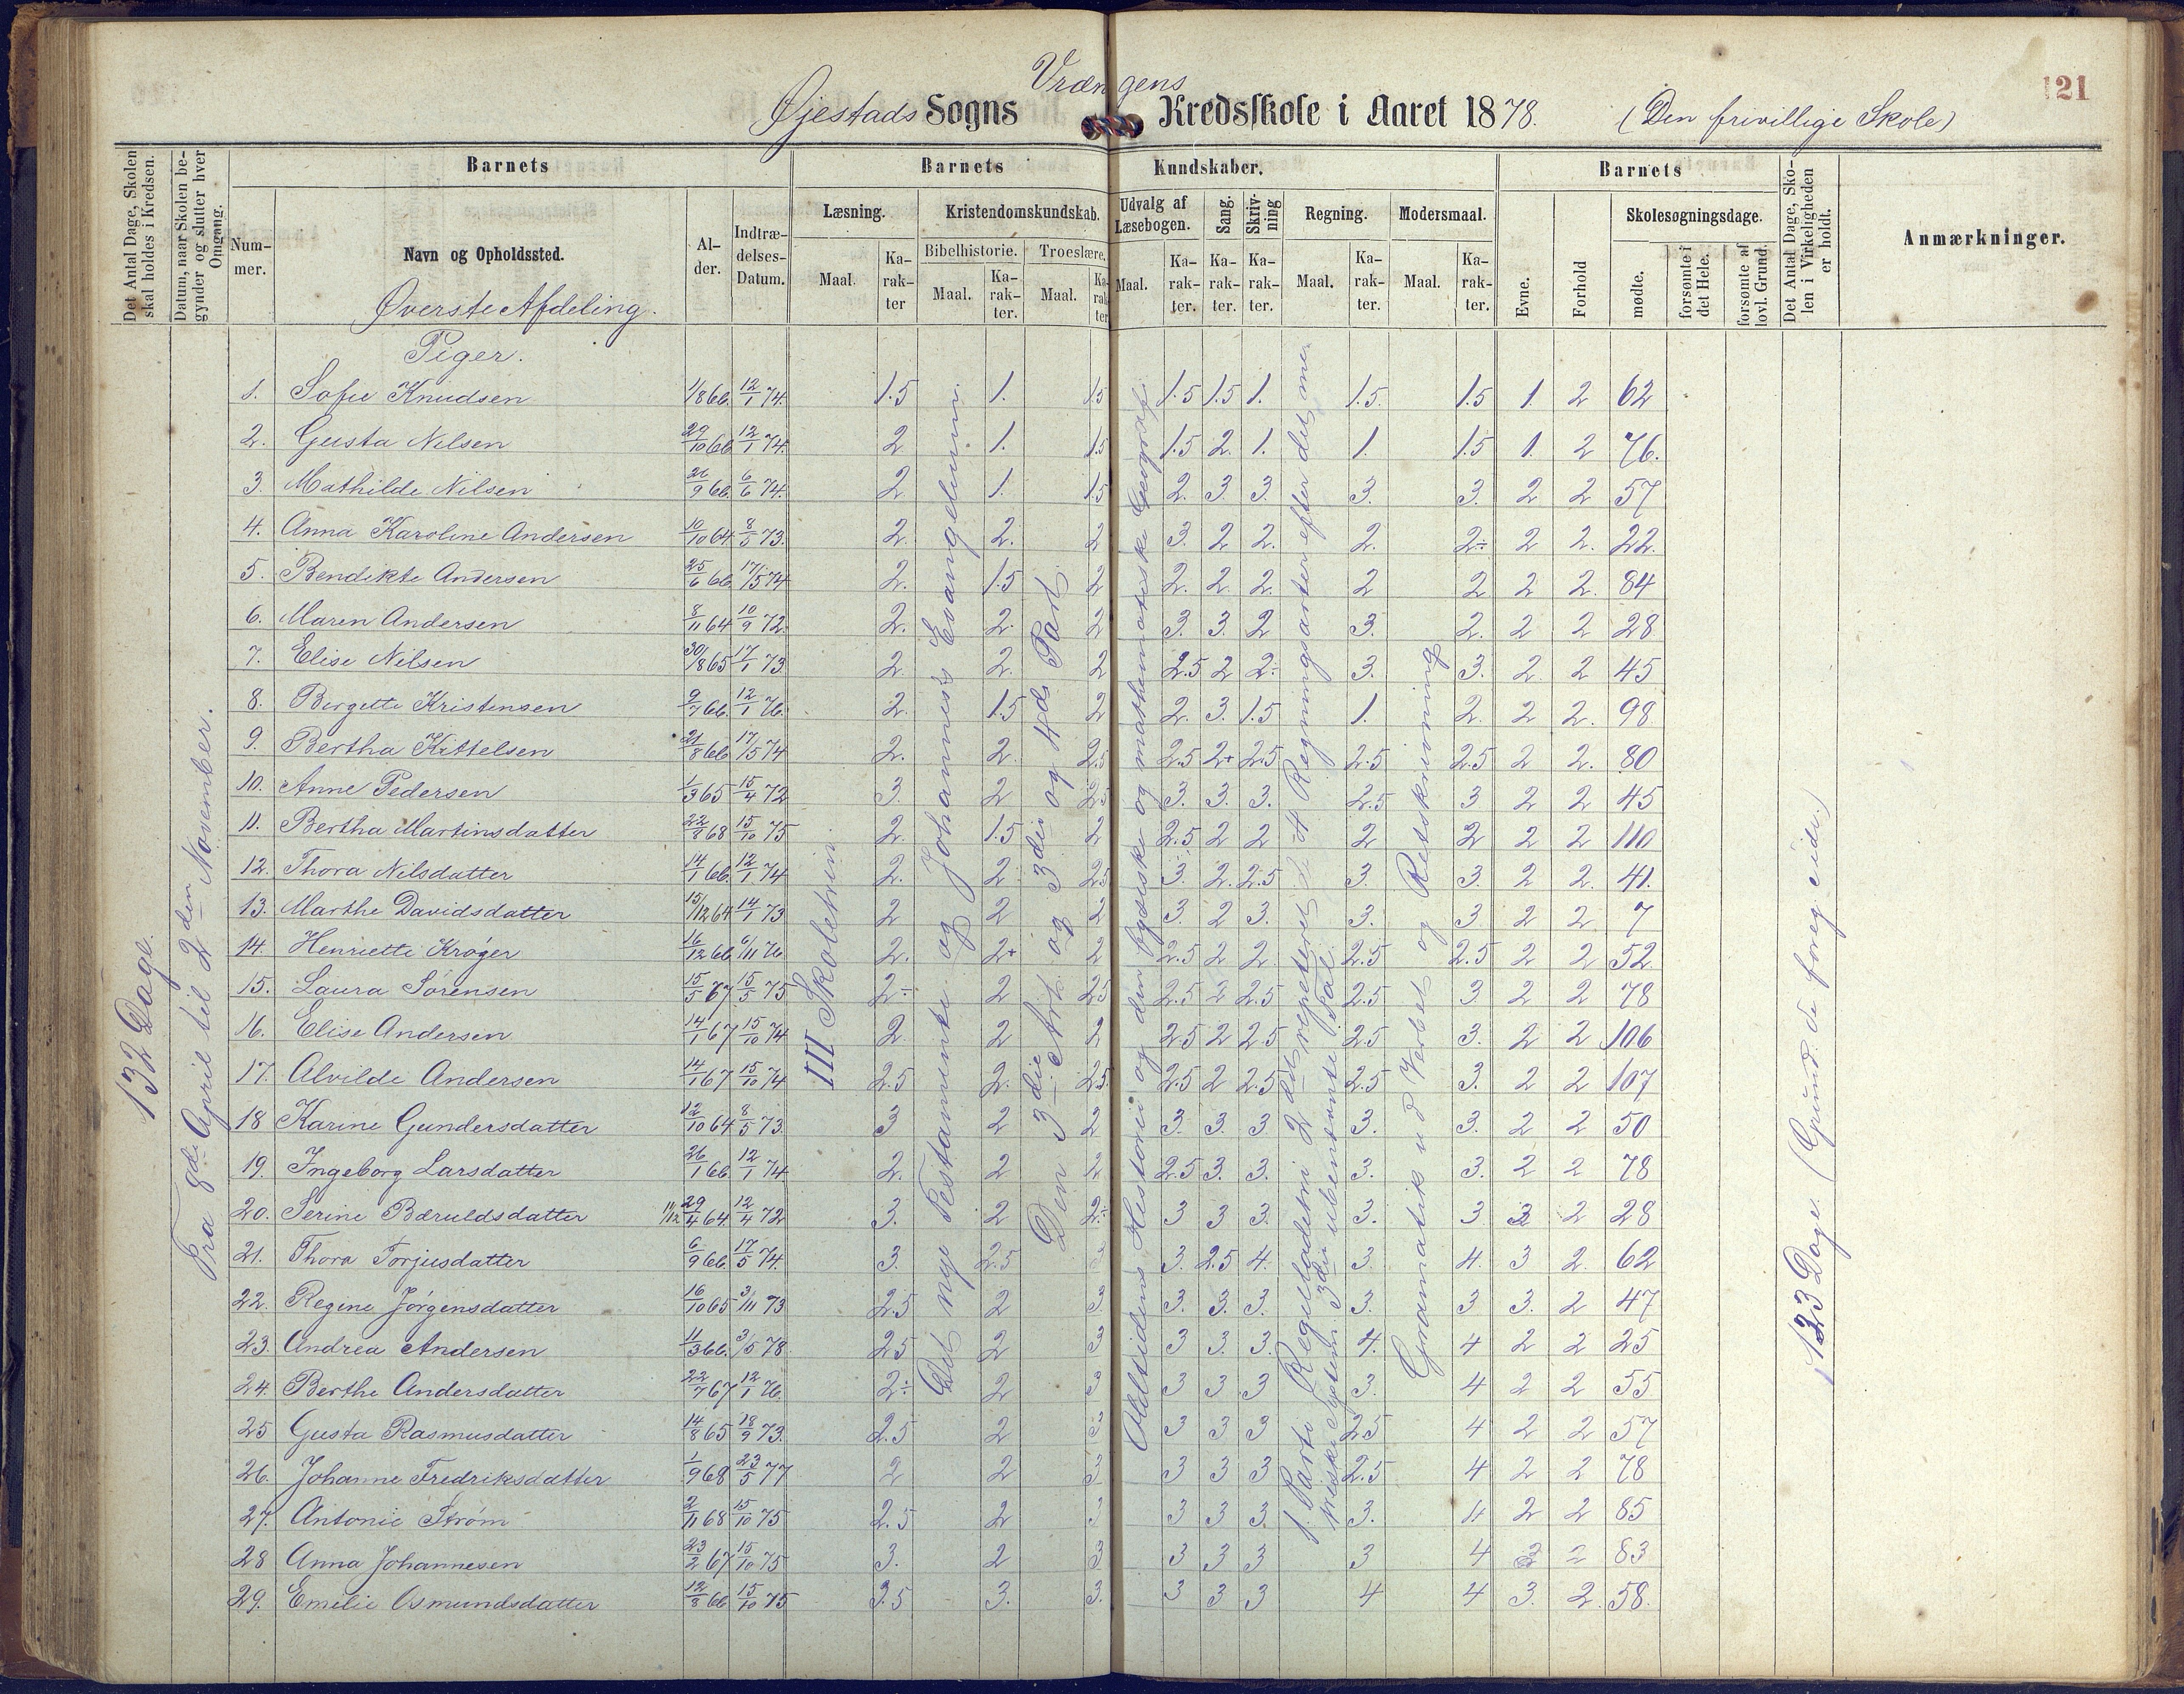 Vrængens
121
Øjestads Sogns Kredsskole i Aaret 1878. (Den frivillige Skole)
Det Antal Dage, Skolen skal holdes i Kredsen.
Datum, naar Skolen begynder og slutter hver Omgang.
Barnets
Barnets Kundskaber.
Barnets
Det Antal Dage, Skolen i Virkeligheden er holdt.
Anmærkninger.
Nummer.
Navn og Opholdssted.
Alder.
Indtrædelses-Datum.
Læsning.
Kristendomskundskab.
Udvalg af Læsebogen.
Sang.
Skrivning
Regning.
Modersmaal.
Evne.
Forhold
Skolesøgningsdage.
Bibelhistorie.
Troeslære.
Maal. Karakter Maal. Karakter. Maal. Karakter Maal. Karakter. Karakter. Karakter. Maal. Karakter. Maal. Karakter.
mødte.
forsømte i det Hele.
forsømte af lovl. Grund.
Øverste Afdeling.
Piger.
132 Dage.
Fra 8de April til 2den November.
III Skoletrin
Det nye Testamente og Johannes's Evangelium.
Den 3die Art. og 3die og 4de Part.
Oldtidens Historie og den fysiske og mathematiske Geografi.
1. Parti Regelladetri 2det repeteret de 4 Regningsarter efter det me-
triske System 3die ubenævnte Tal.
Gramatik ved Verbet og Retskrivning
123 Dage. (Grund. de foreg. Side.)
1. Sofie Knudsen 1/8 66. 12/1 74. 1.5 1. 1.5 1.5 1.5 1. 1.5. 1.5 1. 2 62
2. Gusta Nilsen 29/10 66 12/1 74. 2 1. 1.5 1.5 2. 1. 1. 1.5 1. 2 76.
3. Mathilde Nilsen 26/9 66. 6/6 74. 2 1. 1.5 2. 3. 3. 3. 3. 2 2 57
4. Anna Karoline Andersen 10/10 64 8/5 73. 2. 2. 2 3. 2 2. 2. 2÷ 2 2. 22.
5. Bendikte Andersen 25/6 66. 17/5 74 2. 1.5 2 2. 2. 2. 2 2 2 2. 84
6. Maren Andersen 8/11 64 10/9 72. 2. 2. 2 3. 3. 2 3. 2. 2 2 28
7. Elise Nilsen 30/8 65 17/1 73 2 2. 2 2.5 2 2÷ 3. 3. 2 2 45
8. Birgette Kristensen 9/7 66. 12/1 76. 2. 1.5 2 2. 3. 1.5 1. 2. 2 2. 98
9. Bertha Kittelsen 21/8 66 17/5 74 2. 2. 2.5 2.5 2+ 2.5 2.5 2.5 2 2. 80
10. Anne Pedersen 1/3 65 15/4 72 3. 2 2.5 3. 3. 3. 2.5 3 2 2 45
11. Bertha Martinsdatter 22/8 68 15/10 75 2. 1.5 2 2.5 2 2 2 2 2 2 110
12. Thora Nilsdatter 14/1 66. 12/1 74 2. 2 2.5 3. 2. 2.5 3. 3. 2 2. 41.
13. Marthe Davidsdatter 15/12 64 14/1 73 2 2 2 3. 2 3. 3. 3 2 2. 7
14. Henriette Krøger 16/12 66 6/11 76 2. 2+ 2 2.5 2 2. 2.5 2.5 2 2 52.
15. Laura Sørensen 15/5 67 15/5 75 2÷ 2 2.5 2.5 2 2.5 2.5 3 2 2 78
16. Elise Andersen 14/1 67 15/10 74 2. 2 2 2.5 2 2.5 2.5 3. 2 2 106
17. Alvilde Andersen 14/1 67 15/10 74 2.5 2. 2.5. 2.5 2 2.5 2.5 3. 2 2 107
18 Karine Gundersdatter 12/10 64 8/5 73. 3 2 2 3. 3. 3 3. 3. 2 2 50
19. Ingeborg Larsdatter 26/1 66. 12/1 74 2. 2 2 2.5 3. 3. 3. 3. 2 2 78
20. Serine Bæruldsdatter 11/12 29/4 64 12/4 72 3. 2 2÷ 3 3 3. 3. 3 3 2 28
21. Thora Torjusdatter 6/9 66. 17/5 74. 3. 2.5 3 3. 2.5 4. 3. 4. 3 2. 62
22. Regine Jørgensdatter 16/10 65 3/11 73 2.5 2 3 3. 3. 3. 3. 3 3. 2 47
23. Andrea Andersen 11/3 66. 3/5 78. 2.5 2 3 3 3. 3. 4. 4 2 2 25
24. Berthe Andersdatter 22/7 67 12/1 76. 2÷ 2 3 3 3 3 3. 4 2 2 55
25 Gusta Rasmusdatter 14/8 65 18/9 73. 2.5 2 3 3 3 3 2.5 4 2 2 57
26. Johanne Fredriksdatter 1/9 68 23/5 77 2 2 3 3 3 3 2.5 4 2 2 78
27. Antonie Strøm 2/11 68 15/10 75 2.5 2 3 3 3 3. 3. 4 2 2 85
28 Anna Johannesen 23/2 67 15/10 75 3. 2 3 3 3 3 3 4 3 2 83
29. Emilie Osmundsdatter 12/8 66 15/10 75 3.5 3. 3. 3 3 3 4 4 3. 2. 58.